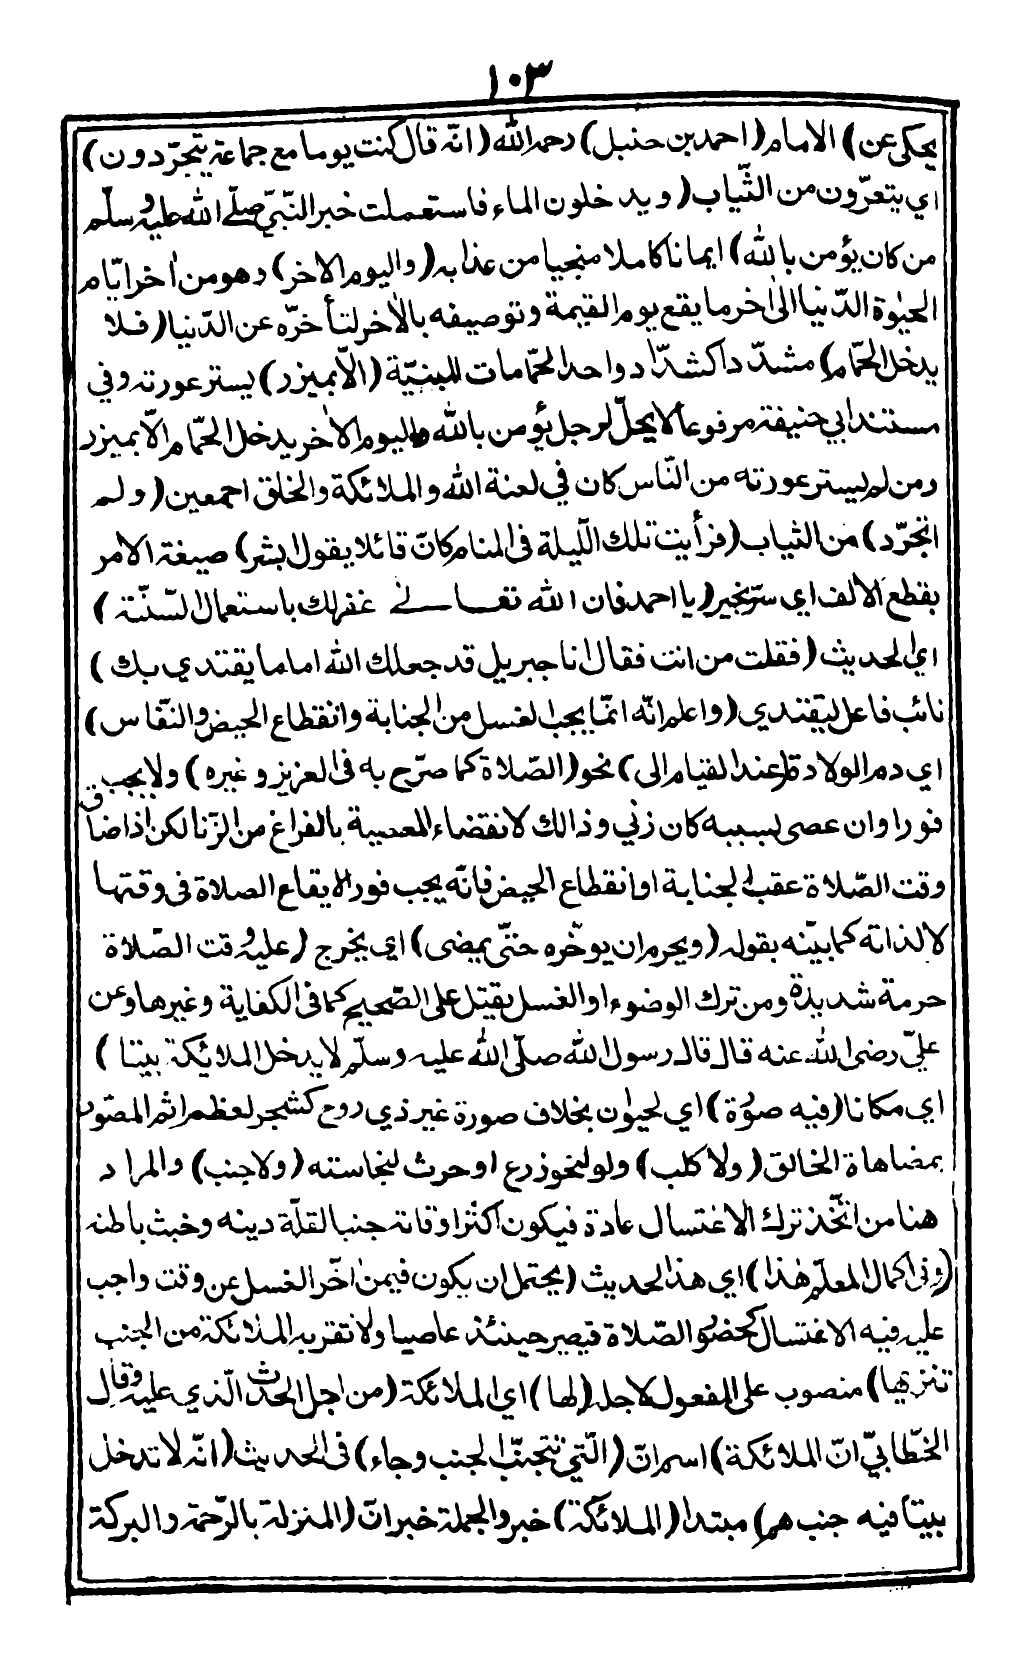 ١٠٣
يحكى عن) الامام (احمد بن حنبل) رحمه الله (انّه قال كنت يوما مع جماعة يتجرّدون)
اي يتعرّون من الثّياب (ويدخلون الماء فاستعملت خبر النّبيّ صلّى الله عليه وسلّم
من كان يؤمن بالله) ايمانا كاملا منجيا من عذابه (واليوم الاخر) وهو من اٰخر ايّام
الحيٰوة الدّنيا الىٰ اٰخر ما يقع يوم القيٰمة وتوصيفه بالاٰخر لتأخرّه عن الدّنيا (فلا
يدخل الحمّام) مشدّدا كشدّاد واحد الحمّامات المبنيّة (الاّ بميزر) يستر عورته وفي
مسند ابي حنيفة مرفوعا لا يحلّ لرجل يؤمن بالله واليوم الاٰخر يدخل الحمّام الاّ بميزر
ومن لم يستر عورته من النّاس كان في لعنة الله والملائكة والخلق اجمعين (ولم
اتجرّد) من الثياب (فرأيت تلك اللّيلة فى المنام كانّ قائلا يقول ابشر) صيغة الامر
بقطع الالف اي سرّ بخير (يا احمد فان الله تعالى غفر لك باستعمال السّنّة)
اي الحديث (فقلت من انت فقال انا جبريل قد جعلك الله اماما يقتدي بك)
نائب فاعل ليقتدي (واعلم انّه انمّا يجب الغسل من الجنابة وانقطاع الحيض والنّفاس)
اي دم الولادة (عند القيام الى) نحو (الصّلاة كما صرّح به فى العزيز وغيره) ولا يجب
فورا وان عصى بسببه كان زني وذالك لانقضاء المعصية بالفراغ من الزّنا لكن اذا ضاق
وقت الصّلاة عقب الجنابة او انقطاع الحيض فانّه يجب فور الايقاع الصلاة فى وقتها
لا لذاته كما بيّنه بقوله (ويحرم ان يوخّره حتّى يمضى) اي يخرج (عليه وقت الصّلاة
حرمة شديدة ومن ترك الوضوء او الغسل يقتل على الصّحيح كما فى الكفاية وغيرها وعن
عليّ رضى الله عنه قال قال رسول الله صلّى الله عليه وسلّم لا يدخل الملائكة بيتا)
اي مكانا (فيه صورة) اي لحيوان بخلاف صورة غير ذي روح كشجر لعظم اثم المصّور
بمضاهاة الخالق (ولا كلب) ولو لنحو زرع او حرث لنجاسته (ولا جنب) والمراد
هنا من اتّخذ ترك الاغتسال عادة فيكون اكثر اوقاته جنبا لقلّة دينه وخبث باطنه
(وفى اكمال المعلّم هٰذا) اي هذا الحديث (يحتمل ان يكون فيمن اخّر الغسل عن وقت واجب
عليه فيه الاغتسال كحضور الصّلاة فيصير حينئذ عاصيا ولا تقربه الملائكة من الجنب
تنزيها) منصوب على المفعول لاجله (لها) اي الملائكة (من اجل الحدث الّذي عليه وقال
الخطّابيّ انّ الملائكة) اسم انّ (الّتي تتجنّب الجنب وجاء) فى الحديث (انّه لا تدخل
بيتا فيه جنب هم) مبتدا (الملائكة) خبر والجملة خبر انّ (المنزلة بالرّحمة والبركة